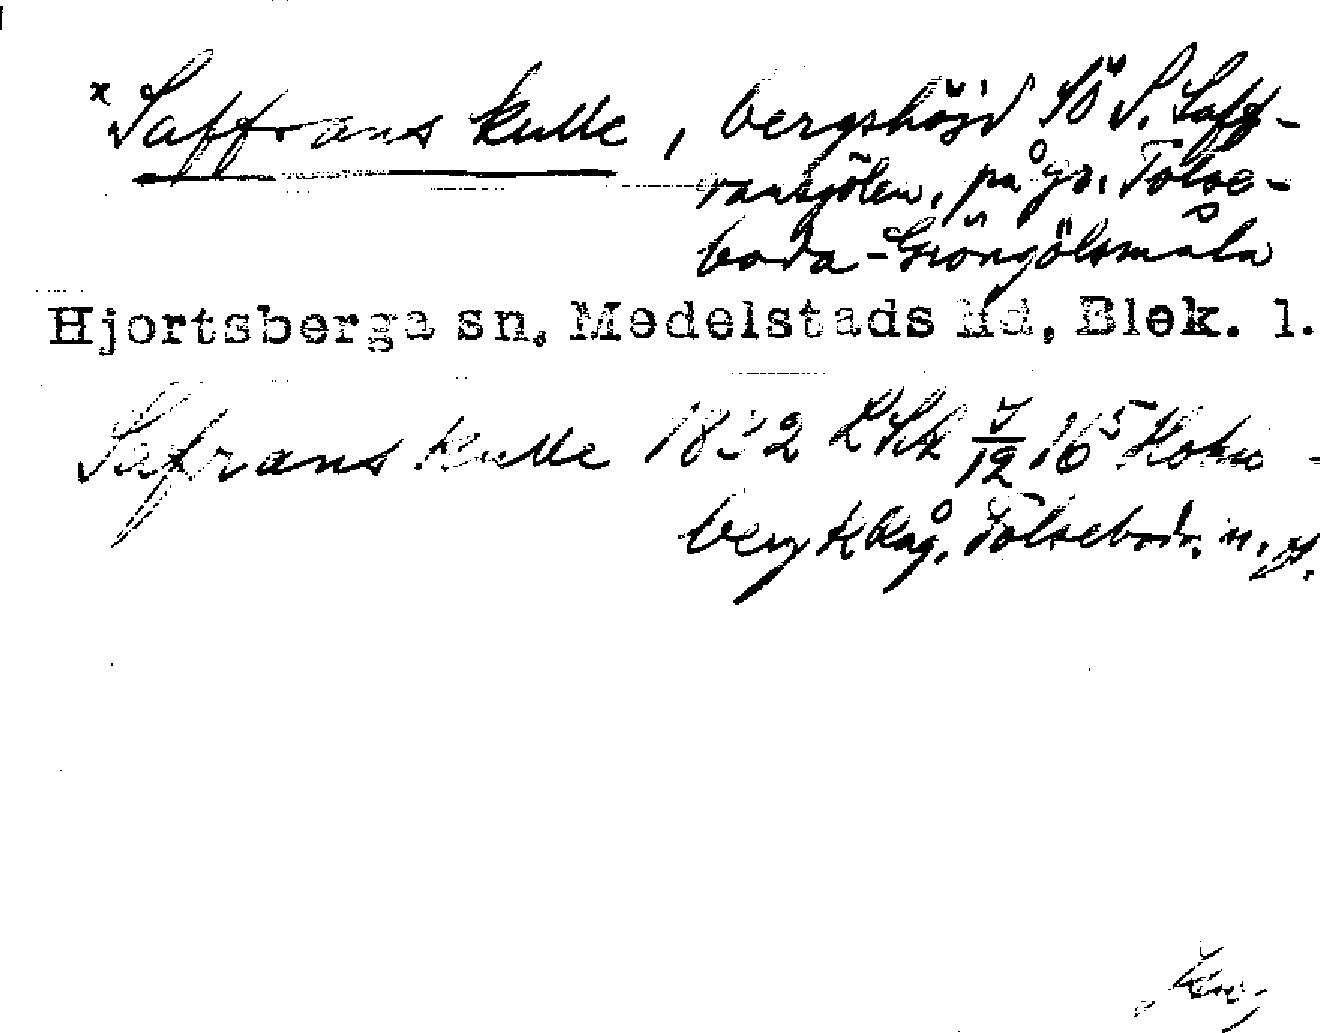 × Saffrans kulle, bergshöjd SÖ S. Saff-
ransjölen, på gr. Tolse-
boda-Gröngölsmåla
Hjortsberga sn, Medelstads hd, Blek. l.
Safrans kulle 1832 LSk 7/12 16⁵
berg Råg. Tolseboda n.